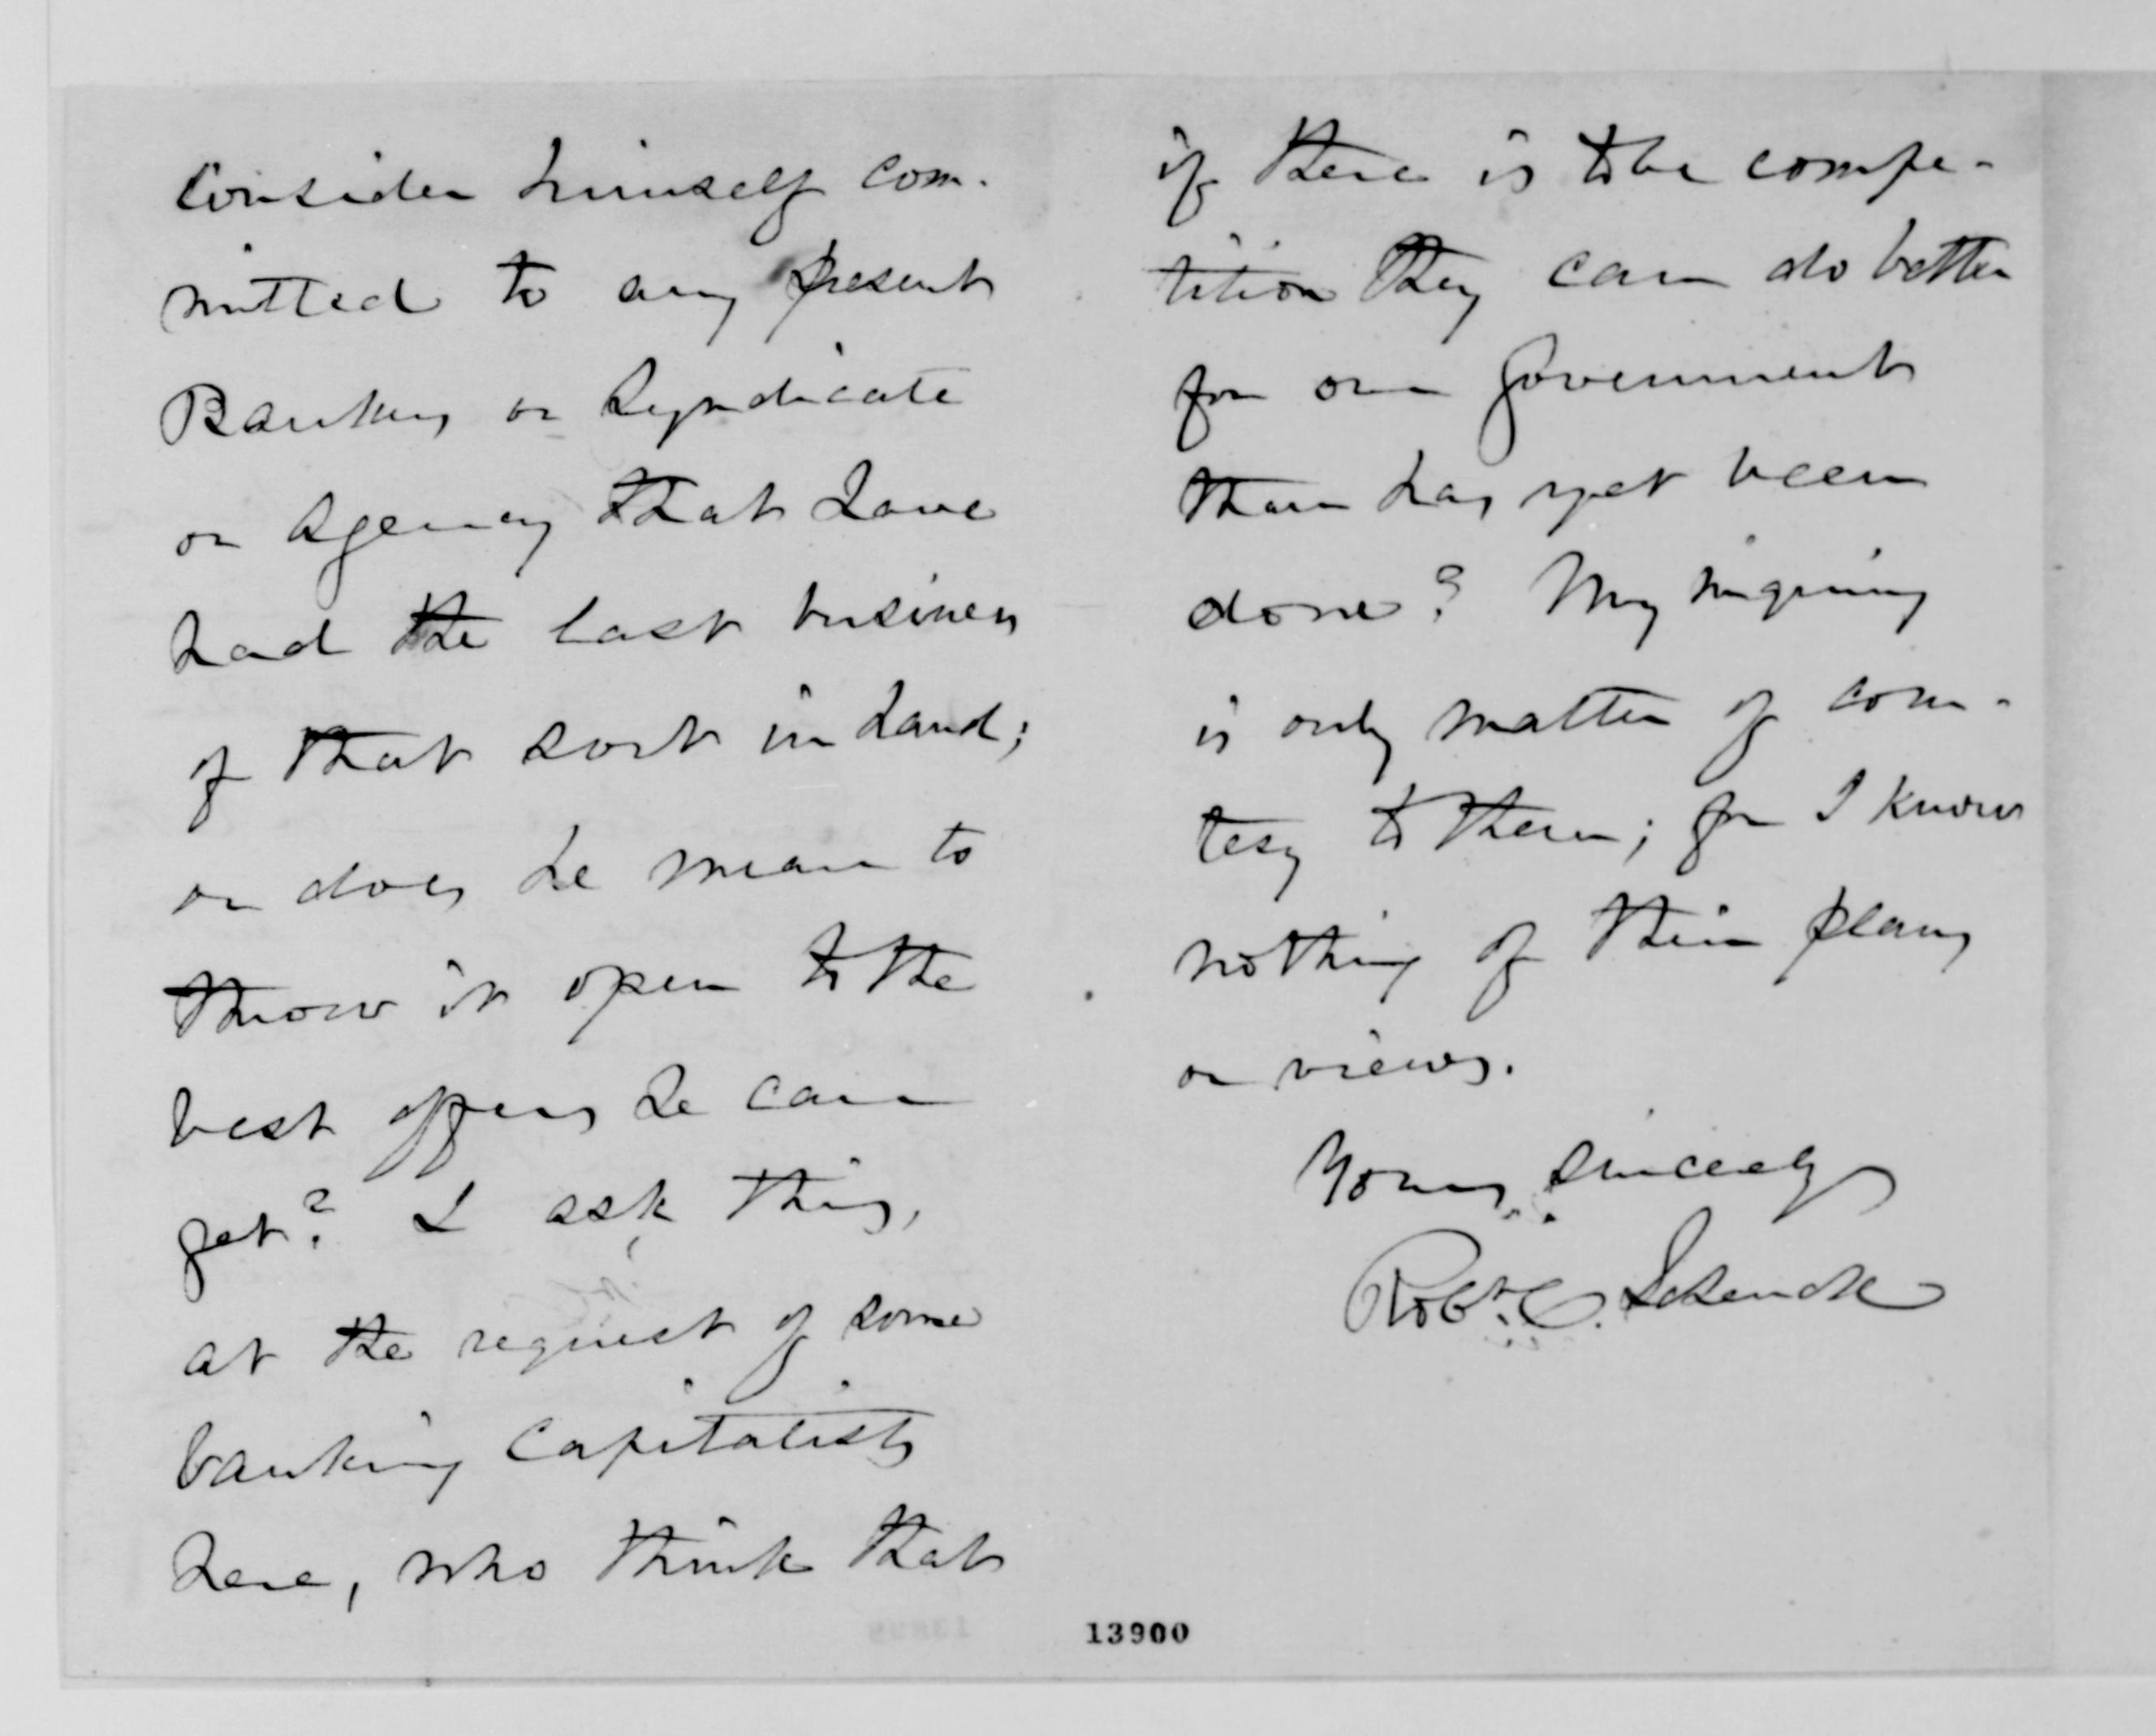 consider himself com-
mitted to any present
Bankers or Syndicate
or Agency that have
had the last business
of that sort in hand;
or does he mean to
throw it open to the
best offers he can
get? I ask this,
at the request of some
banking capitalists
here, who think that
if there is to be compe-
tition they can do better
for our Government
than has yet been
done? My inquiring
is only matter of cour-
tesy to them; for I know
nothing of their plans
or views.
Yours sincerely
Robt. C. Schenck
13900